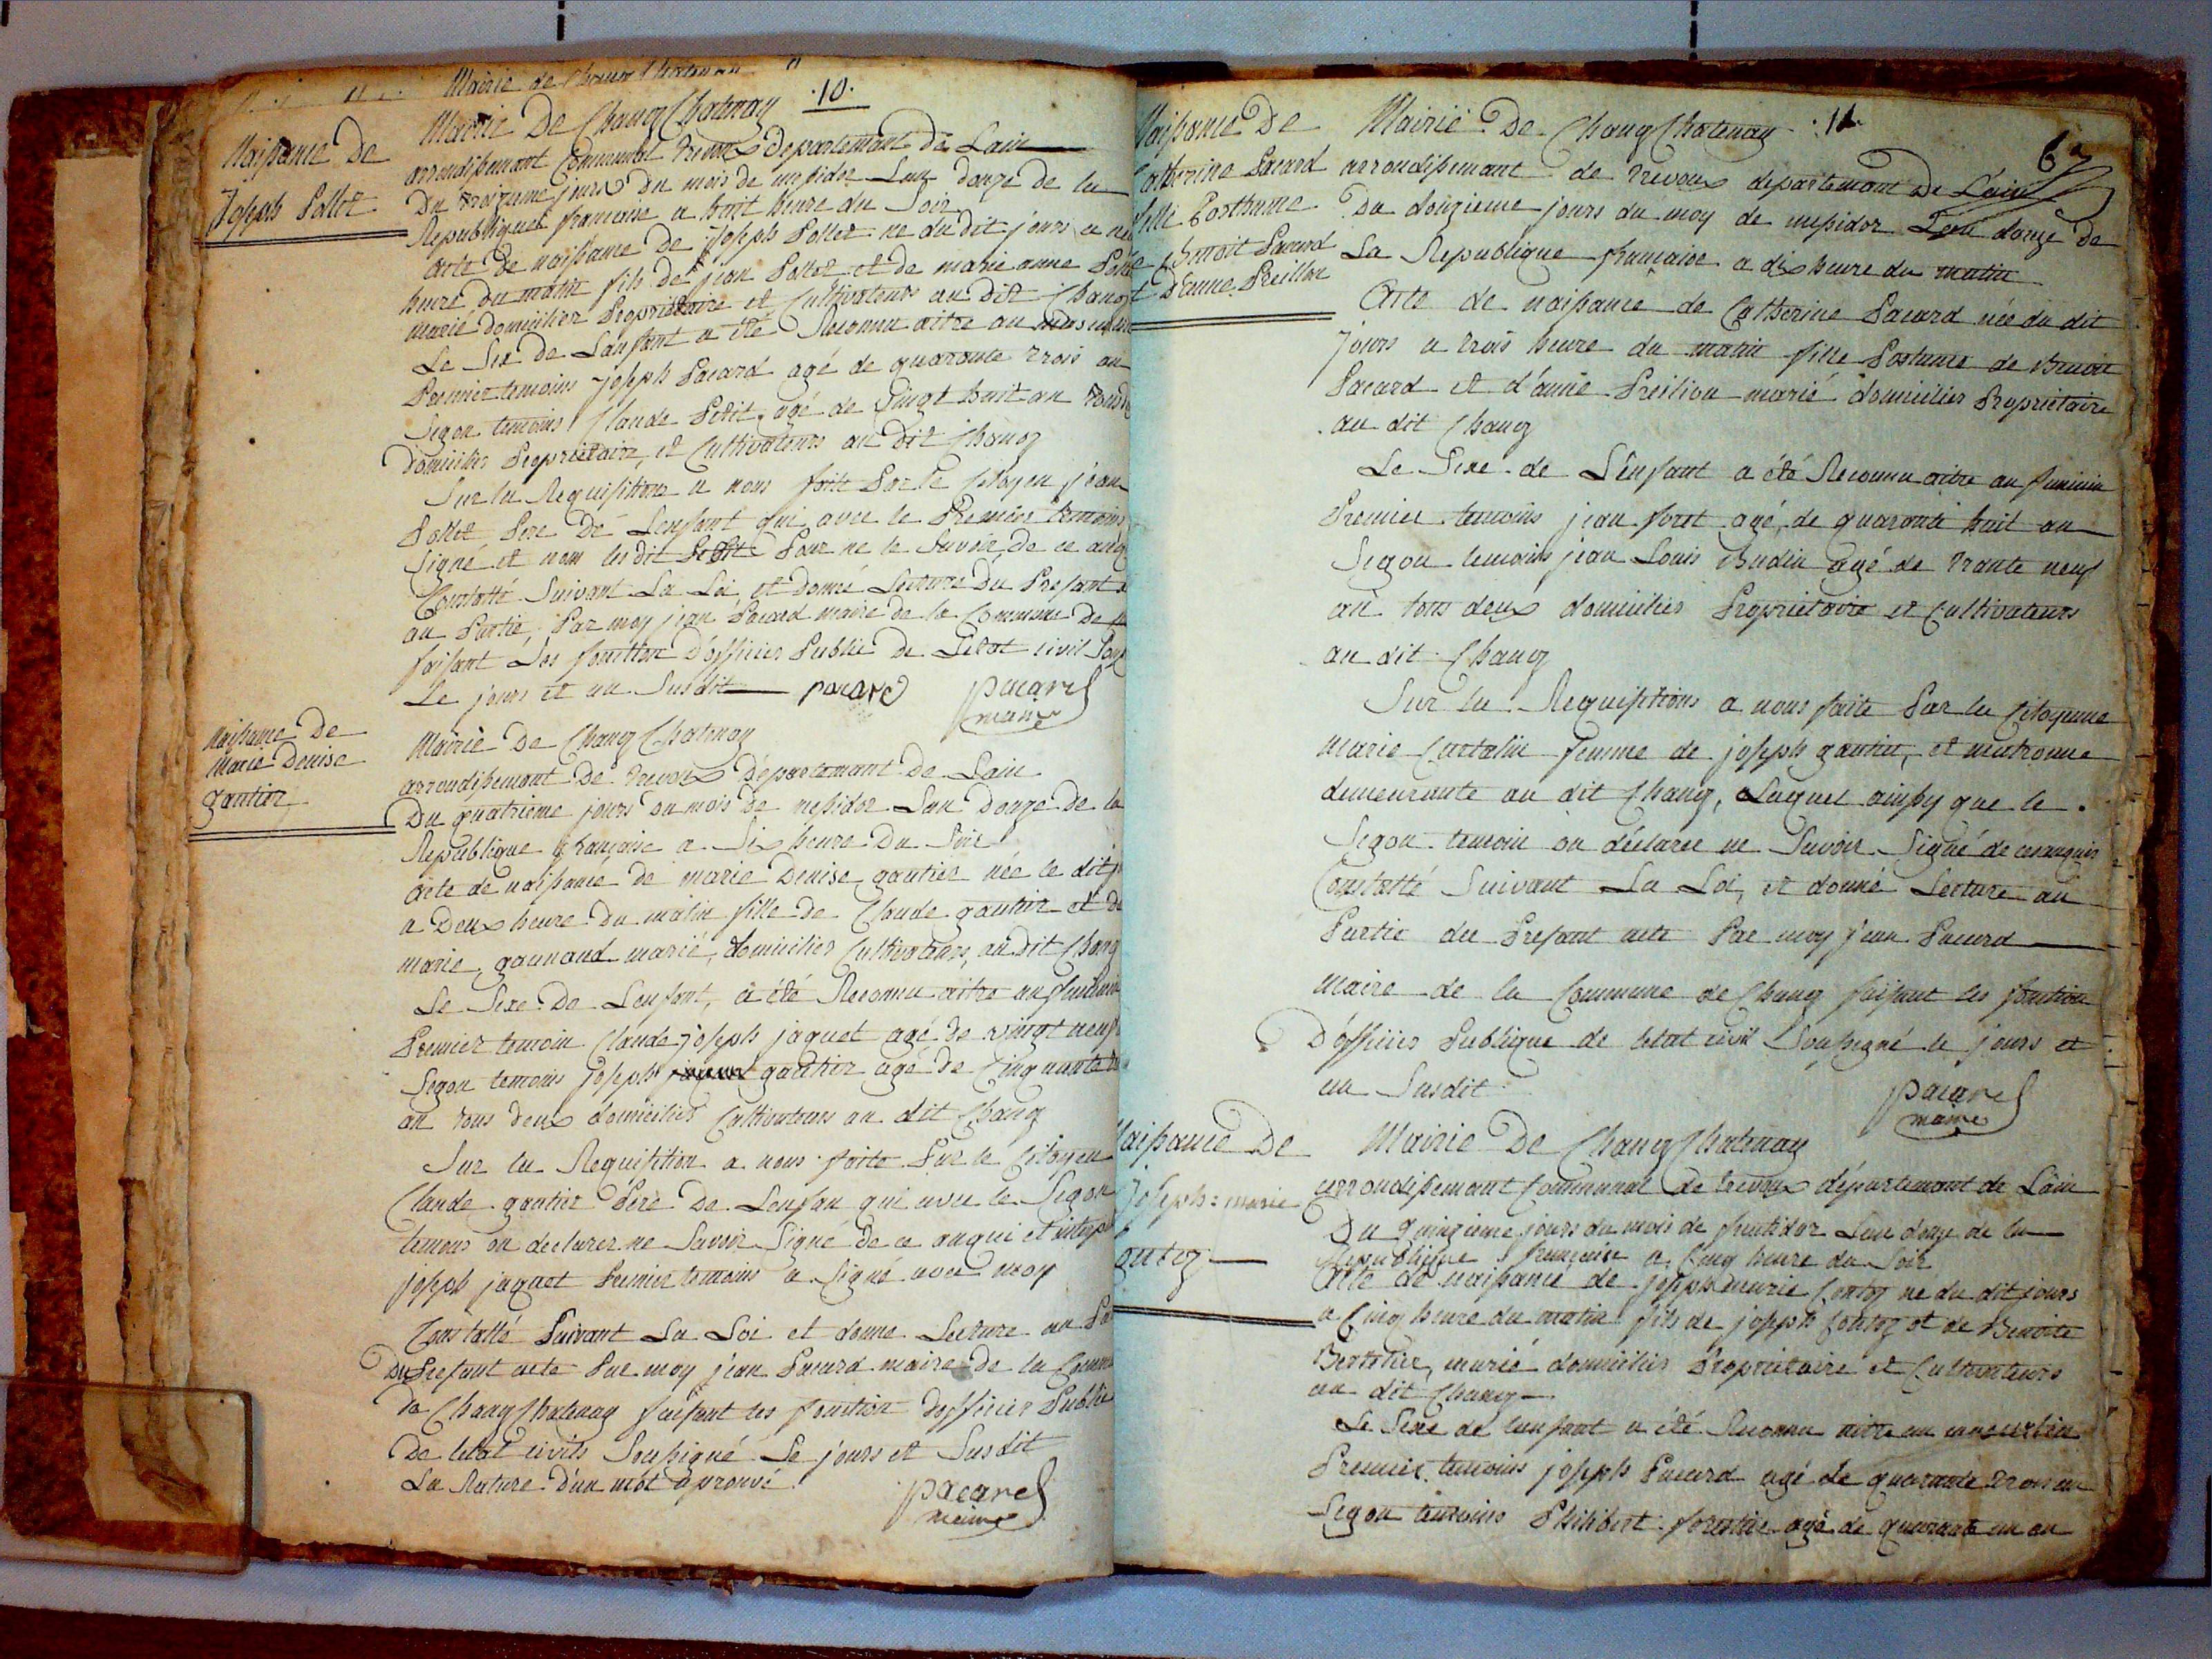 Mairie de Chanoz Chatenay
10.
Naissance de
Joseph Pollet
Mairie De Chanoz Chatenay
arrondissement Communal Trevoux Departemant de Lain
Du Troizieme jours du mois de messidor Lan douze de la
Republique francaise a huit heure du Soir
acte de naissance de Joseph Pollet ne du dit jours a
heure du matin fils de jean Pollet et de marie anne
marié domicilier Propriétaire et Cultivateurs au Dit Chanoz
Le Sex de Lanfant a été Reconnu aitre au
Premier temoins joseph Pacard agé de quarante trois an
Segon temoins Claude Petit agé de Vingt huit an
domicilies Propriétaire, et Cultivateurs au Dit Chanoz
Sur la Requisitions a nous faite Par le Citoyen jean
Pollet Pere De Lenfant qui avec le Premier temoins
Signé et non les dit Petit Pour ne le Savoir, de ce
Constatté Suivant La Loi, et donné Lecture Du Presant
au Partie, Par moy jean Pacard maire de la Commune de
faisant Les fonction d'officier Public de Letat civil
Le jours et an Susdit pacard pacard
maire
Naissance de
Marie Denise
gautier
Mairie De Chanoz Chatenay
arrondissement De Trevoux Departemant De Lain
Du quatrieme jours du mois de messidor Lan Douze de la
Republique francaise a Six heure Du Soir
acte de naissance de marie Denise gautier née le dit
a Deux heure Du matin fille De Claude gautier et de
marie, gaunand marié, domicilier Cultivateurs, au Dit Chanoz
Le Sexe De Lenfant, a été Reconnu aitre au
Premier temoin Claude joseph jaquet agé de vingt neuf
Segon temoins joseph gautier agé de Cinquante
an tous deux domicilies Cultivateurs au dit Chanoz
Sur la Requisition a nous faite Par le Citoyen
Claude gautier Pere De Lenfan qui avec le Segon
temons on declarer ne Savoir Signé de ce anqui et
joseph jaquet Premier temoins a Signé avec moy
Constatté Suivant La Loi et donne Lecture au
Du Presant acte Par moy jean Pacard maire de la
De Chanoz Chatenay faisant les fonction dofficier Public
De letat civils Soussigné Le jours et Susdit
La Rature D'un mot aprouvé
pacard
maire
Naissance De
Catherine Pacard
fille Posthume
Benoit Pacard
D'anne Preillon
Mairie De Chanoz Chatenay 11.
arrondissemant de Trevoux departemant De Lain
Du douzieme jours du moy de messidor Lan douze De
La Republique francaise a dix heure du matin
Acte de naissance de Catherine Pacard née du dit
Jours a trois heure du matin fille Postume de Benoit
Pacard et d'anne Preilion marié domicilies Propriétaire
au dit Chanoz
Le Sexe de L'enfant a été Reconnu aitre au
Premier temoins jean foret agé, de quarante huit an
Segon temoins jean Louis Budin agé de trante neuf
an tous deux domicilies Propriétaire et Cultivateurs
au dit Chanoz
Sur la Requisitions a nous faite Par la Citoyenne
marie Cartalin femme de joseph gautier, et matronne
demeurante au dit Chanoz, Laquel ainsy que le
Segon temoin on déclarer ne Savoir Signé
Constatté Suivant La Loi, et donné Lecture au
Partie du Presant acte Par moy jean Pacard
maire de la Commune de Chanoz faisant les fonction
D'officier Publique de letat civil Soussigné le jours et
an Susdit
pacard
maire
Naissance De
Joseph: marie
Mairie De Chanoz Chatenay
arrondissemant Communal de Trevoux département de Lain
Du quinzieme jours du mois de fructidor Lan douze de la
Republique francaise a Cinq heure du Soir
Acte de naissance de joseph marie Contoz ne du dit jours
a Cinq heure du matin fils de joseph Contoz et de Benoite
Berthelier, marié domicilies Propriétaire et Cultivateurs
au dit Chanoz
Le Sexe de lenfant a été Reconnu aitre au
Premier temoins joseph Pacard agé de quarante trois an
Segon temoins Philibert forestier agé de quarante un an